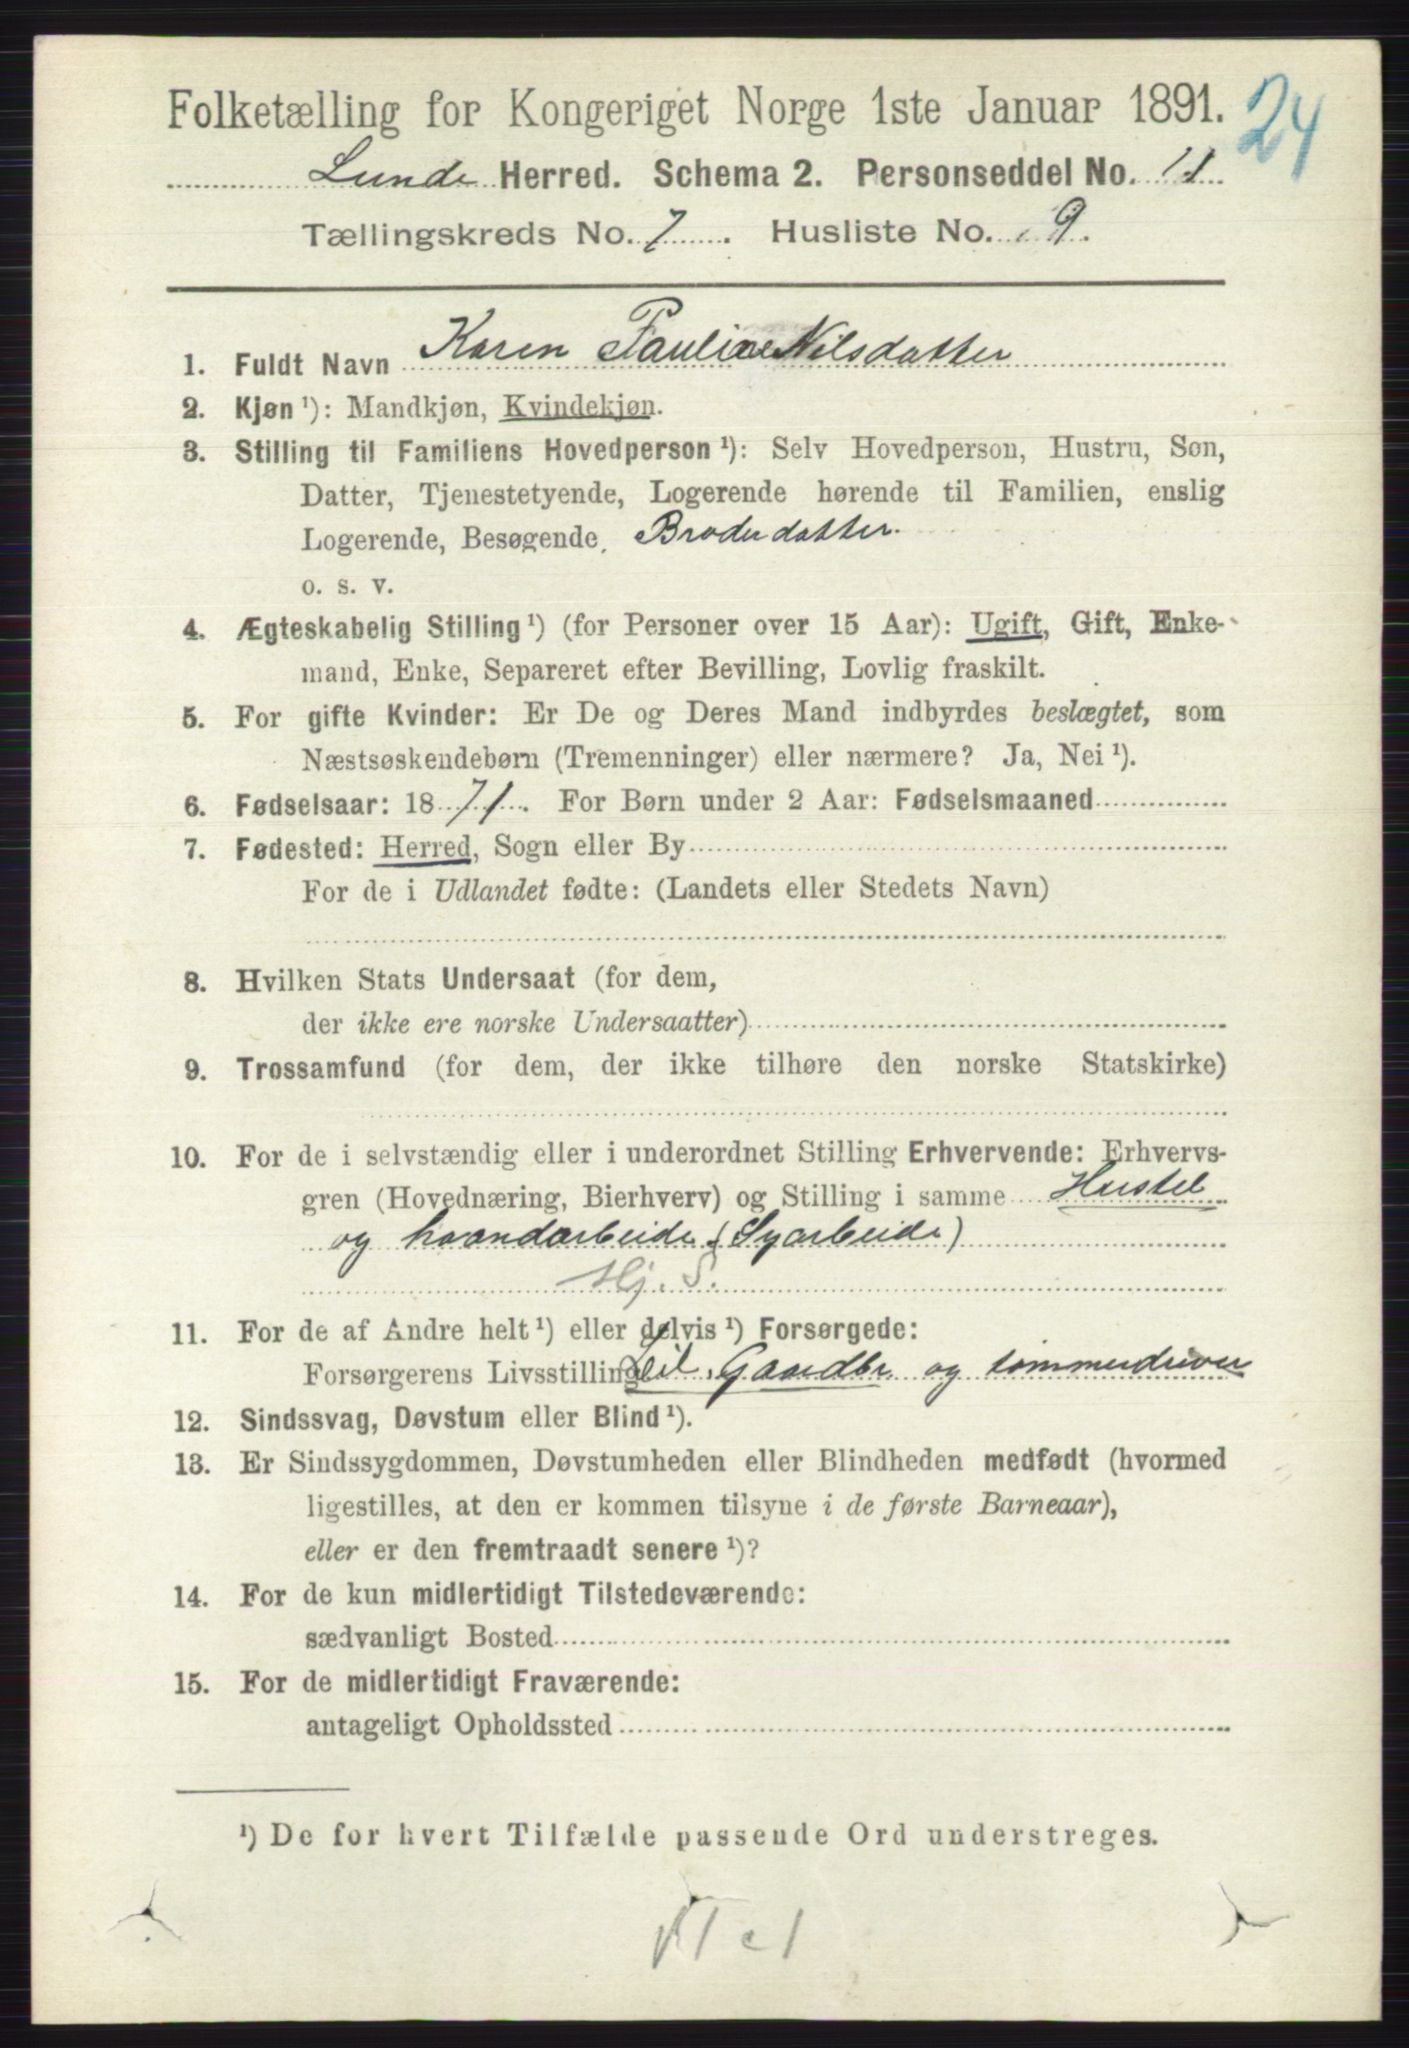 Folketælling for Kongeriget Norge 1ste Januar 1891. 24
Lunde Herred. Schema 2. Personseddel No. 11
Tællingskreds No. 7. Husliste No. 9.
1. Fuldt Navn Karen Pauline Nilsdatter
2. Kjøn ¹): Mandkjøn, Kvindekjøn.
3. Stilling til Familiens Hovedperson ¹): Selv Hovedperson, Hustru, Søn,
Datter, Tjenestetyende, Logerende hørende til Familien, enslig
Logerende, Besøgende, Broderdatter.
o. s. v.
4. Ægteskabelig Stilling ¹) (for Personer over 15 Aar): Ugift, Gift, Enke-
mand, Enke, Separeret efter Bevilling, Lovlig fraskilt.
5. For gifte Kvinder: Er De og Deres Mand indbyrdes beslægtet, som
Næstsøskendebørn (Tremenninger) eller nærmere? Ja, Nei ¹).
6. Fødselsaar: 1871. For Børn under 2 Aar: Fødselsmaaned
7. Fødested: Herred, Sogn eller By
For de i Udlandet fødte: (Landets eller Stedets Navn)
8. Hvilken Stats Undersaat (for dem,
der ikke ere norske Undersaatter)
9. Trossamfund (for dem, der ikke tilhøre den norske Statskirke)
10. For de i selvstændig eller i underordnet Stilling Erhvervende: Erhvervs-
gren (Hovednæring, Bierhverv) og Stilling i samme Husstel
og haandarbeide (Syarbeide)
Hj. S.
11. For de af Andre helt ¹) eller delvis ¹) Forsørgede:
Forsørgerens Livsstilling Leil. Gaardbr. og tømmerdriver
12. Sindssvag, Døvstum eller Blind ¹).
13. Er Sindssygdommen, Døvstumheden eller Blindheden medfødt (hvormed
ligestilles, at den er kommen tilsyne i de første Barneaar),
eller er den fremtraadt senere ¹)?
14. For de kun midlertidigt Tilstedeværende:
sædvanligt Bosted
15. For de midlertidigt Fraværende:
antageligt Opholdssted
¹) De for hvert Tilfælde passende Ord understreges.